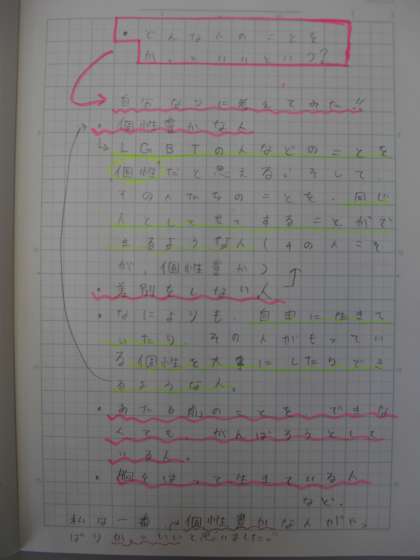 ・どんな人のことを
か、こいいというつ?
自分なりに考えてみた!!
・個性豊かな人
→LGBTの人などのことを
個性だと思える。そして
その人たちのことを、同じ
人としてせっすることがで
きるような人(その人こそ
が、個性豊か)
・差別をしない人
・なによりも、自由に生きて
いたり、その人がもってい
る個性を大事にしたりでき
るような人。
・あたり前のことを、できな
くても、がんばろうとして
いる人。
・個をは、て生きている人
など。
私は一番、個性豊かな人がや、
ぱりか、こいいと思いました。